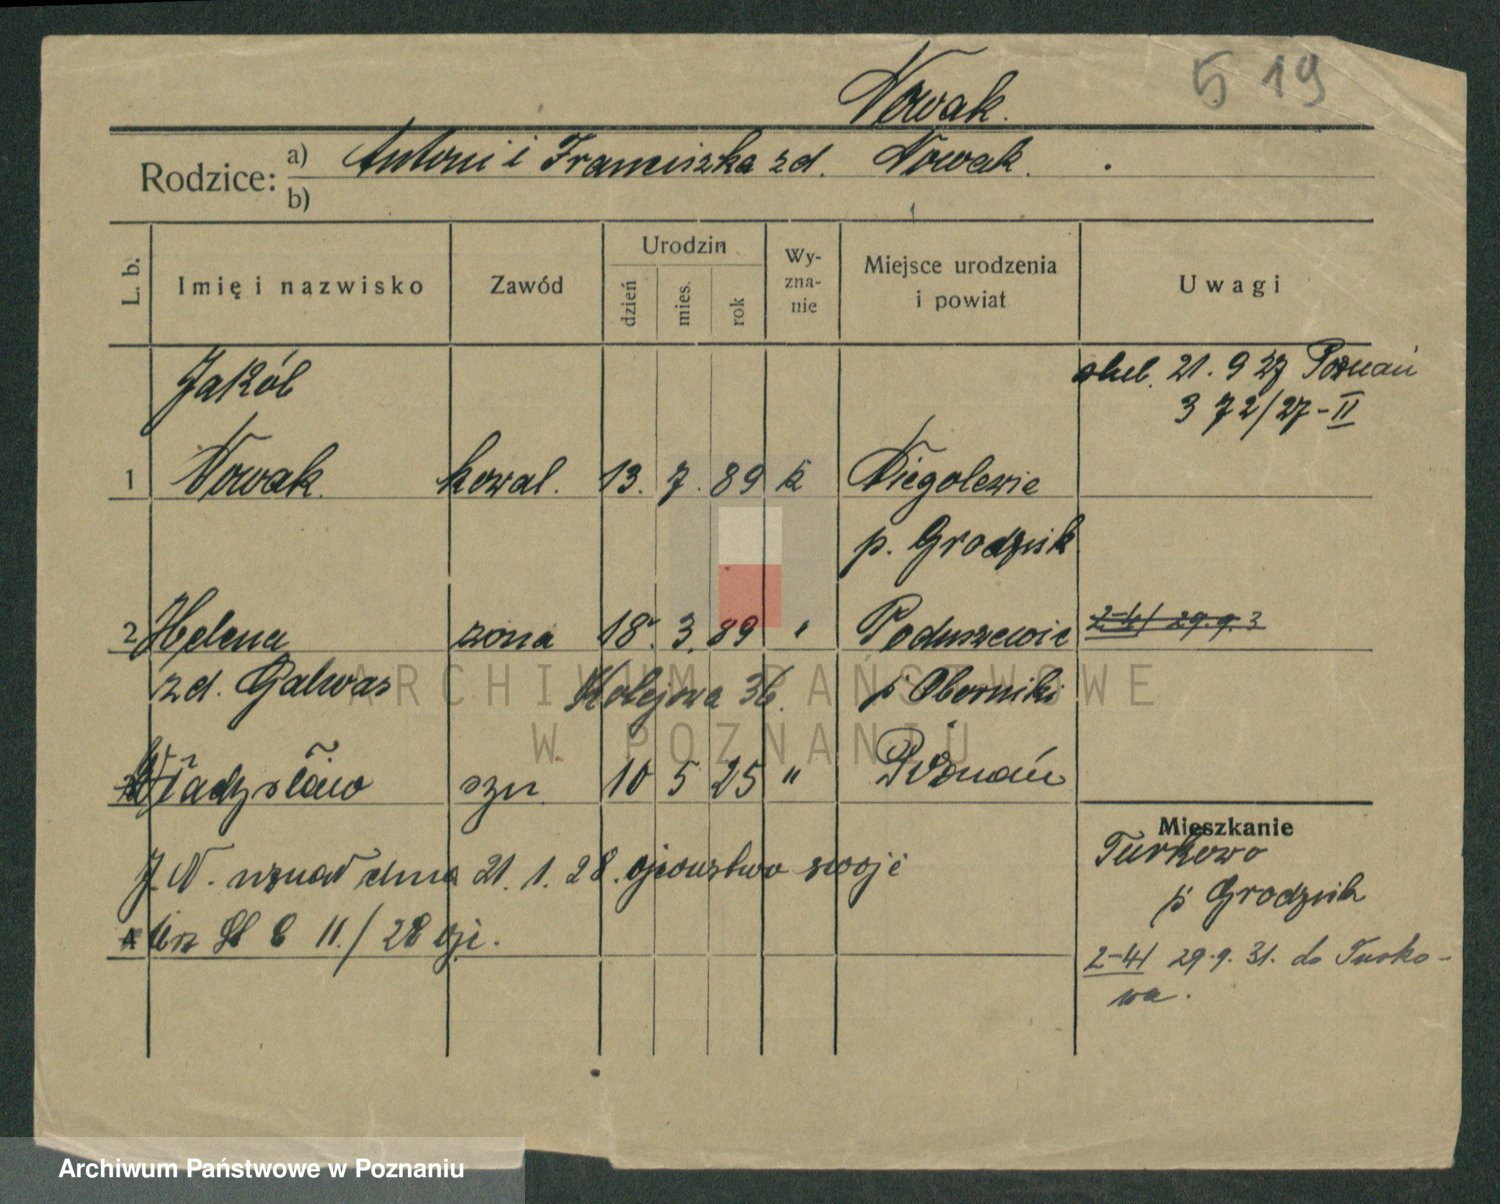 Nowak.
5 19
Rodzice:
a) Antoni i Franciszka zd. Nowak.
b)
L. b.
Imię i nazwisko
Zawód
Urodzin
dzień
mies.
rok
Wy-
zna-
nie
Miejsce urodzenia
i powiat
Uwagi
Jakób
21. 9 27 Poznań
372/27-II
1 Nowak. kowal. 13. 7. 89 k Niegolewie
p. Grodzisk
2 Helena żona 18. 3. 89 " Poduszewie 2-41 29.9.3
zd. Galwas Kolejowa 36. p Oborniki
3 Władysław syn 10 5 25 " Poznań
Mieszkanie
Turkowo
p Grodzisk
J. N. uznał dnia 21. 1. 28. ojcowstwo swoje
4 11./28
2-41 29.9.31. do Turko-
wa.
ARCHIWUM PAŃSTWOWE
W POZNANIU
Archiwum Państwowe w Poznaniu